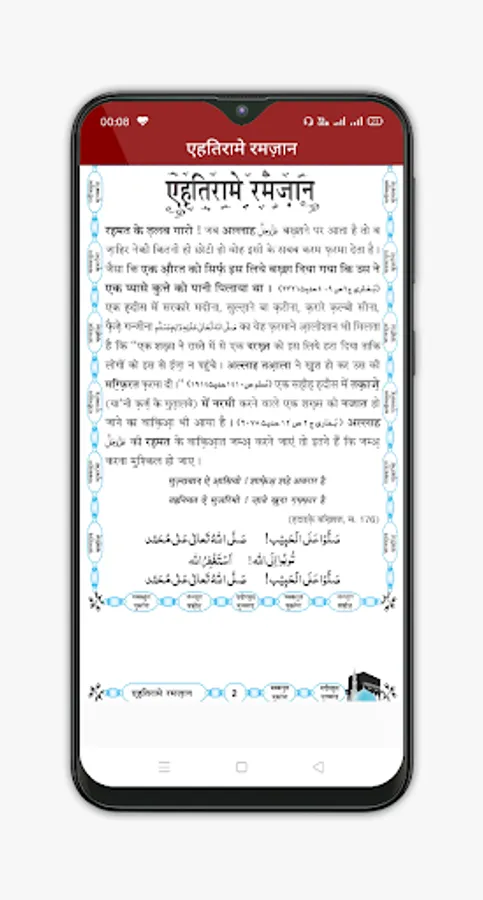 00:08
एहतिरामे रमज़ान
एहतिरामे रमज़ान
रहमत के तलब गारो ! जब अल्लाह عَزَّوَجَلَّ बख़्शने पर आता है तो ब
ज़ाहिर नेकी कितनी ही छोटी हो वोह इसी के सबब करम फ़रमा देता है।
जैसा कि एक औरत को सिर्फ़ इस लिये बख़्श दिया गया कि उस ने
एक प्यासे कुत्ते को पानी पिलाया था ।
एक हदीस में सरकारे मदीना, सुल्ताने बा क़रीना, क़रारे क़ल्बो सीना,
फ़ैज़ गन्जीना صَلَّى اللهُ تَعَالٰى عَلَيْهِ وَاٰلِهٖ وَسَلَّم का येह फ़रमाने आलीशान भी मिलता
है कि "एक शख़्स ने रास्ते में से एक दरख़्त को इस लिये हटा दिया ताकि
लोगों को इस से ईज़ा न पहुंचे । अल्लाह तआला ने खुश हो कर उस की
मग़्फ़िरत फ़रमा दी ।" एक सहीह हदीस में तक़ाज़े
(या'नी क़र्ज़ के मुतालबे) में नरमी करने वाले एक शख़्स की नजात हो
जाने का वाक़िआ भी आया है । अल्लाह
عَزَّوَجَلَّ की रहमत के वाक़िआत जम्अ करने जाएं तो इतने हैं कि जम्अ
करना मुश्किल हो जाए ।
मुज़्दाबाद ऐ आसियो ! शाफ़ेअ़ शहे अबरार है
तहनियत ऐ मुजरिमो ! ज़ाते खुदा ग़फ़्फ़ार है
(हदाइके बख़्शिश, स. 176)
صَلُّوْا عَلَى الْحَبِيْب! صَلَّى اللهُ تَعَالٰى عَلٰى مُحَمَّد
تُوْبُوْا اِلَى الله! اَسْتَغْفِرُ الله
صَلُّوْا عَلَى الْحَبِيْب! صَلَّى اللهُ تَعَالٰى عَلٰى مُحَمَّد
एहतिरामे रमज़ान
2